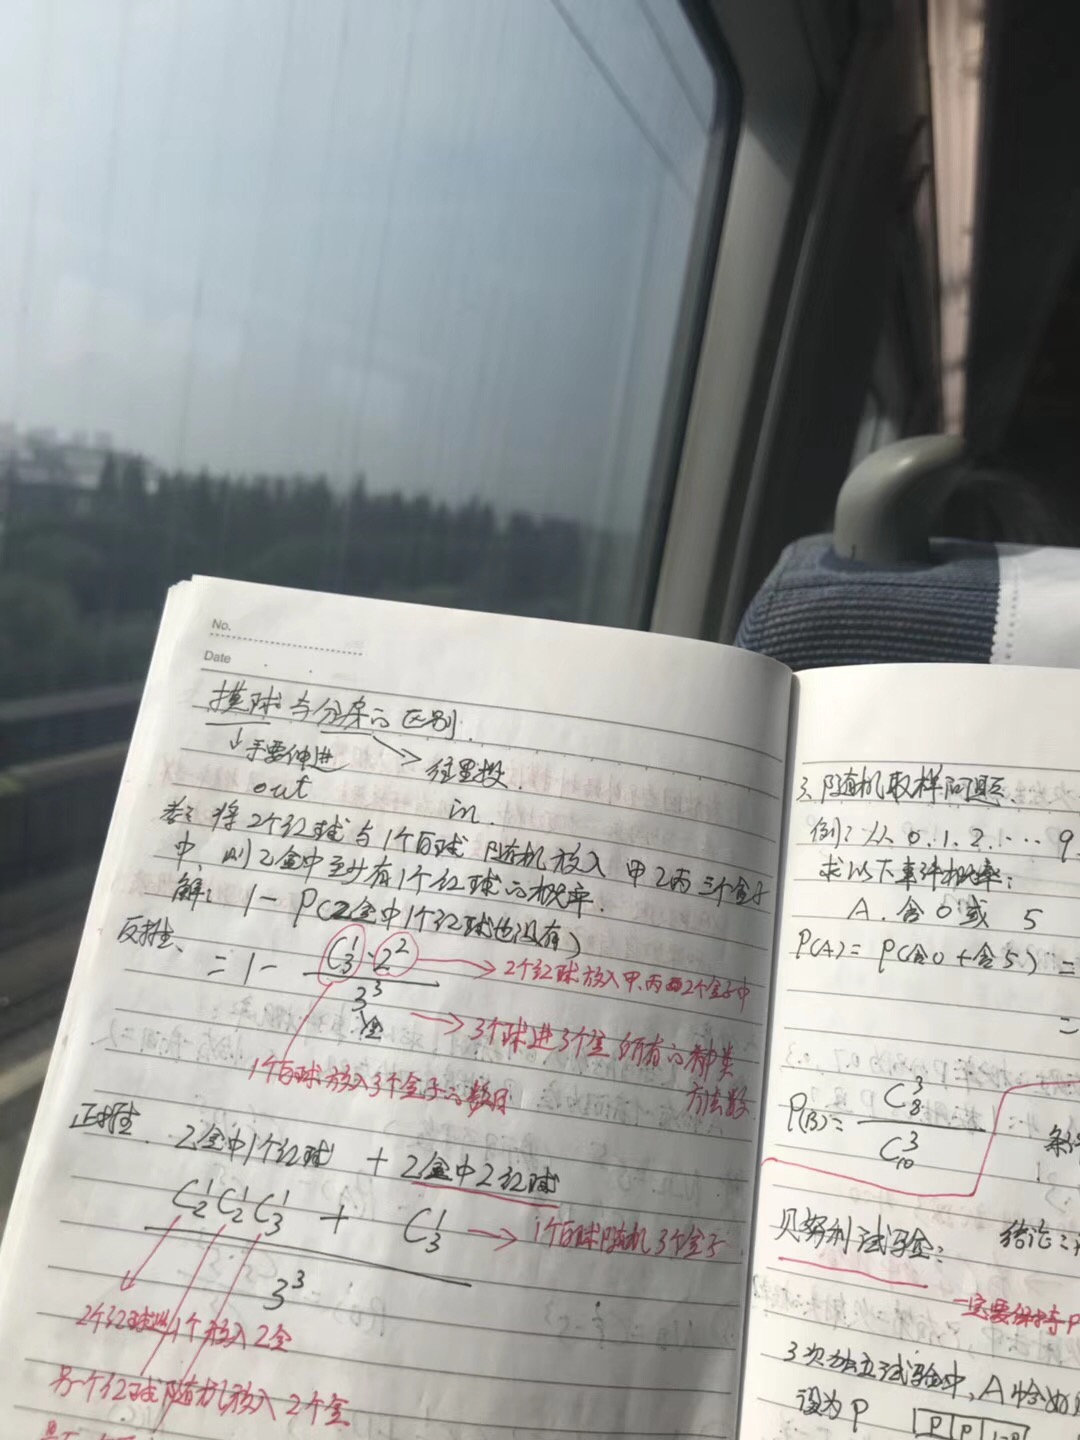 No.
Date
摸球与分房的区别.
↓手要伸进 → 往里投.
out in.
类: 将2个红球与1个白球随机放入甲乙丙三个盒子
中, 则乙盒中至少有1个红球的概率.
解: 1-P(乙盒中1个红球也没有)
反推: = 1 - C₃¹·2² / 3³
→ 2个红球放入甲、丙 2个盒子中
→ 3个球进3个盒 所有的种类
方法数
1个白球放入3个盒子的数目
正推 乙盒中1个红球 + 乙盒中2红球
C₂¹C₂¹C₃¹ + C₃¹ → 1个白球随机3个盒子
3³
2个红球 1个放入乙盒
另一个红球随机放入2个盒
3. 随机取样问题.
例: 从 0. 1. 2. … 9
求以下事件概率:
A. 含0或 5
P(A) = P(含0+含5) =
=
P(B) = C₈³ / C₁₀³
贝努利试验: 结论:
一定要保持P
3次独立试验中, A恰好
设为P P P 1-P